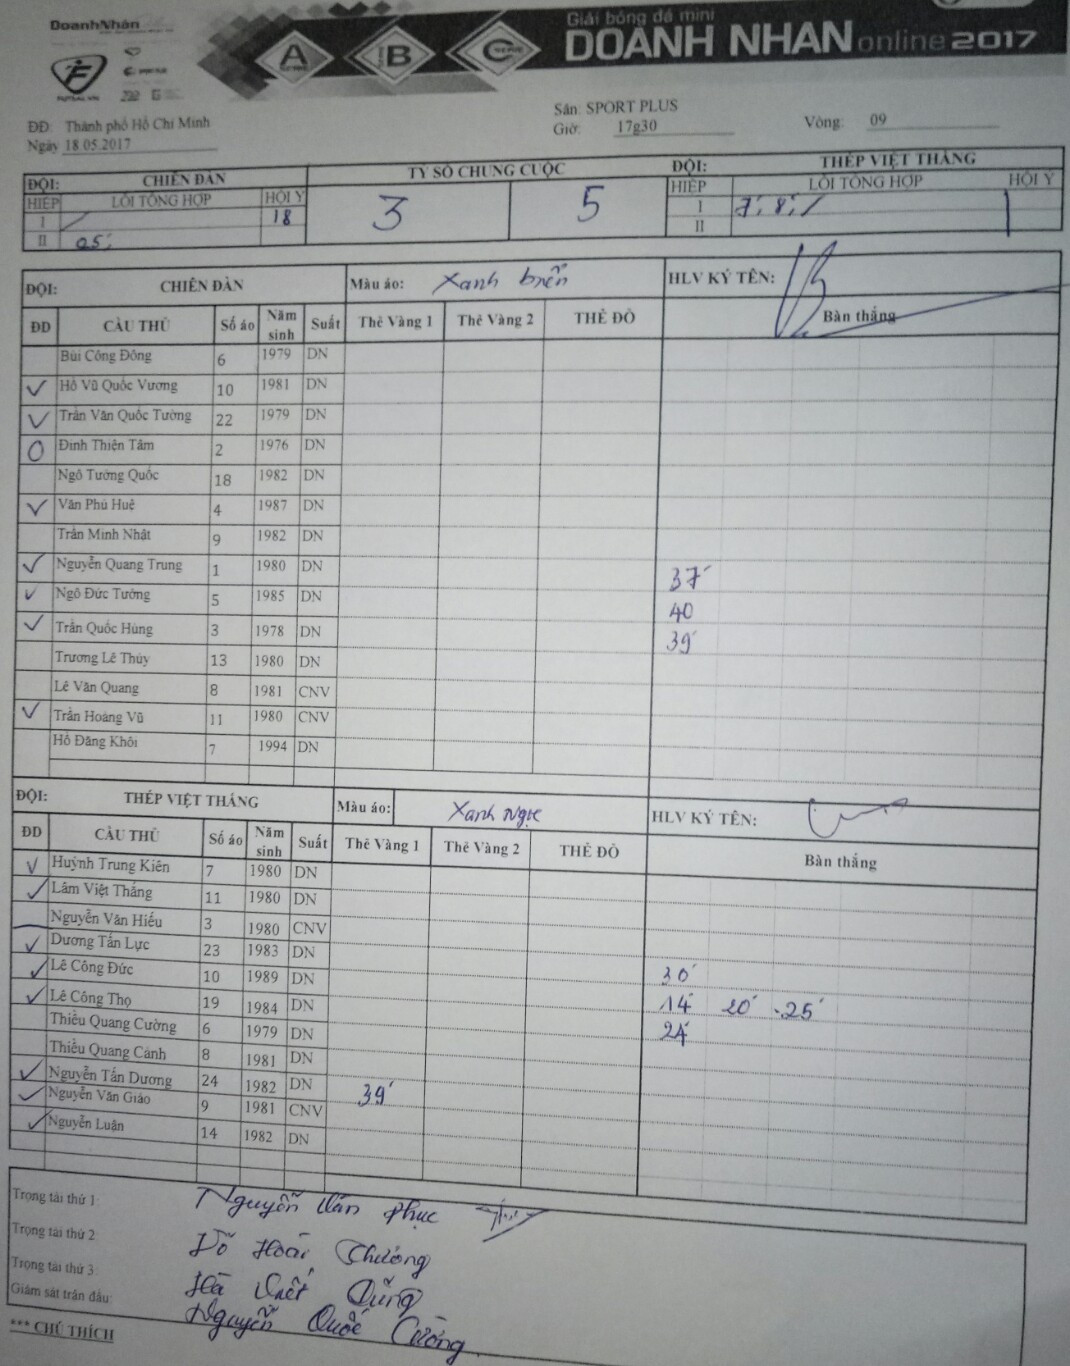 DoanhNhân
FUTSAL.VN
A B C
Giải bóng đá mini
DOANH NHAN online 2017
ĐĐ: Thành phố Hồ Chí Minh
Ngày 18.05.2017
Sân: SPORT PLUS
Giờ: 17g30
Vòng: 09
ĐỘI: CHIẾN ĐÀN TỶ SỐ CHUNG CUỘC ĐỘI: THÉP VIỆT THẮNG
HIỆP LỖI TỔNG HỢP HỘI Ý 3 5 HIỆP LỖI TỔNG HỢP HỘI Ý
I 18 I 7' 8'
II 05' II
ĐỘI: CHIẾN ĐÀN Màu áo: Xanh biển HLV KÝ TÊN:
ĐD CẦU THỦ Số áo Năm sinh Suất Thẻ Vàng 1 Thẻ Vàng 2 THẺ ĐỎ Bàn thắng
Bùi Công Đông 6 1979 DN
✓ Hồ Vũ Quốc Vương 10 1981 DN
✓ Trần Văn Quốc Tường 22 1979 DN
O Đinh Thiện Tâm 2 1976 DN
Ngô Tường Quốc 18 1982 DN
✓ Văn Phú Huê 4 1987 DN
Trần Minh Nhật 9 1982 DN
✓ Nguyễn Quang Trung 1 1980 DN 37'
✓ Ngô Đức Tưởng 5 1985 DN 40
✓ Trần Quốc Hùng 3 1978 DN 39'
Trương Lê Thùy 13 1980 DN
Lê Văn Quang 8 1981 CNV
✓ Trần Hoàng Vũ 11 1980 CNV
Hồ Đăng Khôi 7 1994 DN
ĐỘI: THÉP VIỆT THẮNG Màu áo: Xanh Ngọc HLV KÝ TÊN:
ĐD CẦU THỦ Số áo Năm sinh Suất Thẻ Vàng 1 Thẻ Vàng 2 THẺ ĐỎ Bàn thắng
✓ Huỳnh Trung Kiên 7 1980 DN
✓ Lâm Việt Thắng 11 1980 DN
Nguyễn Văn Hiếu 3 1980 CNV
✓ Dương Tấn Lực 23 1983 DN
✓ Lê Công Đức 10 1989 DN 30'
✓ Lê Công Thọ 19 1984 DN 14' 20' 25'
Thiều Quang Cường 6 1979 DN 24'
Thiều Quang Cảnh 8 1981 DN
✓ Nguyễn Tấn Dương 24 1982 DN 39'
✓ Nguyễn Văn Giáo 9 1981 CNV
✓ Nguyễn Luận 14 1982 DN
Trọng tài thứ 1: Nguyễn Văn Phục
Trọng tài thứ 2: Đỗ Hoài Chương
Trọng tài thứ 3: Hà Việt Dũng
Giám sát trận đấu: Nguyễn Quốc Cường
*** CHÚ THÍCH